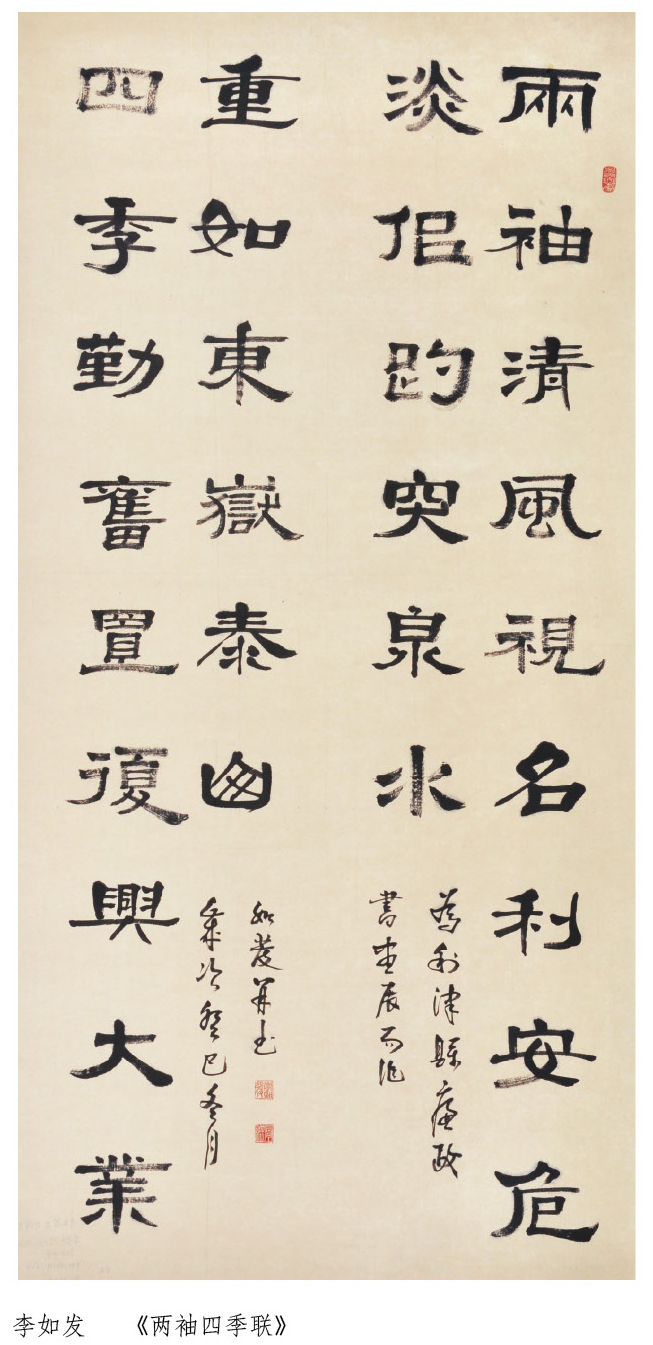 兩袖清風視名利安危
淡佀趵突泉水
為利津縣廉政
書画展而作
四季勤奮置復興大業
重如東嶽泰山
歲次癸巳冬月
如發并书
李如发 《两袖四季联》